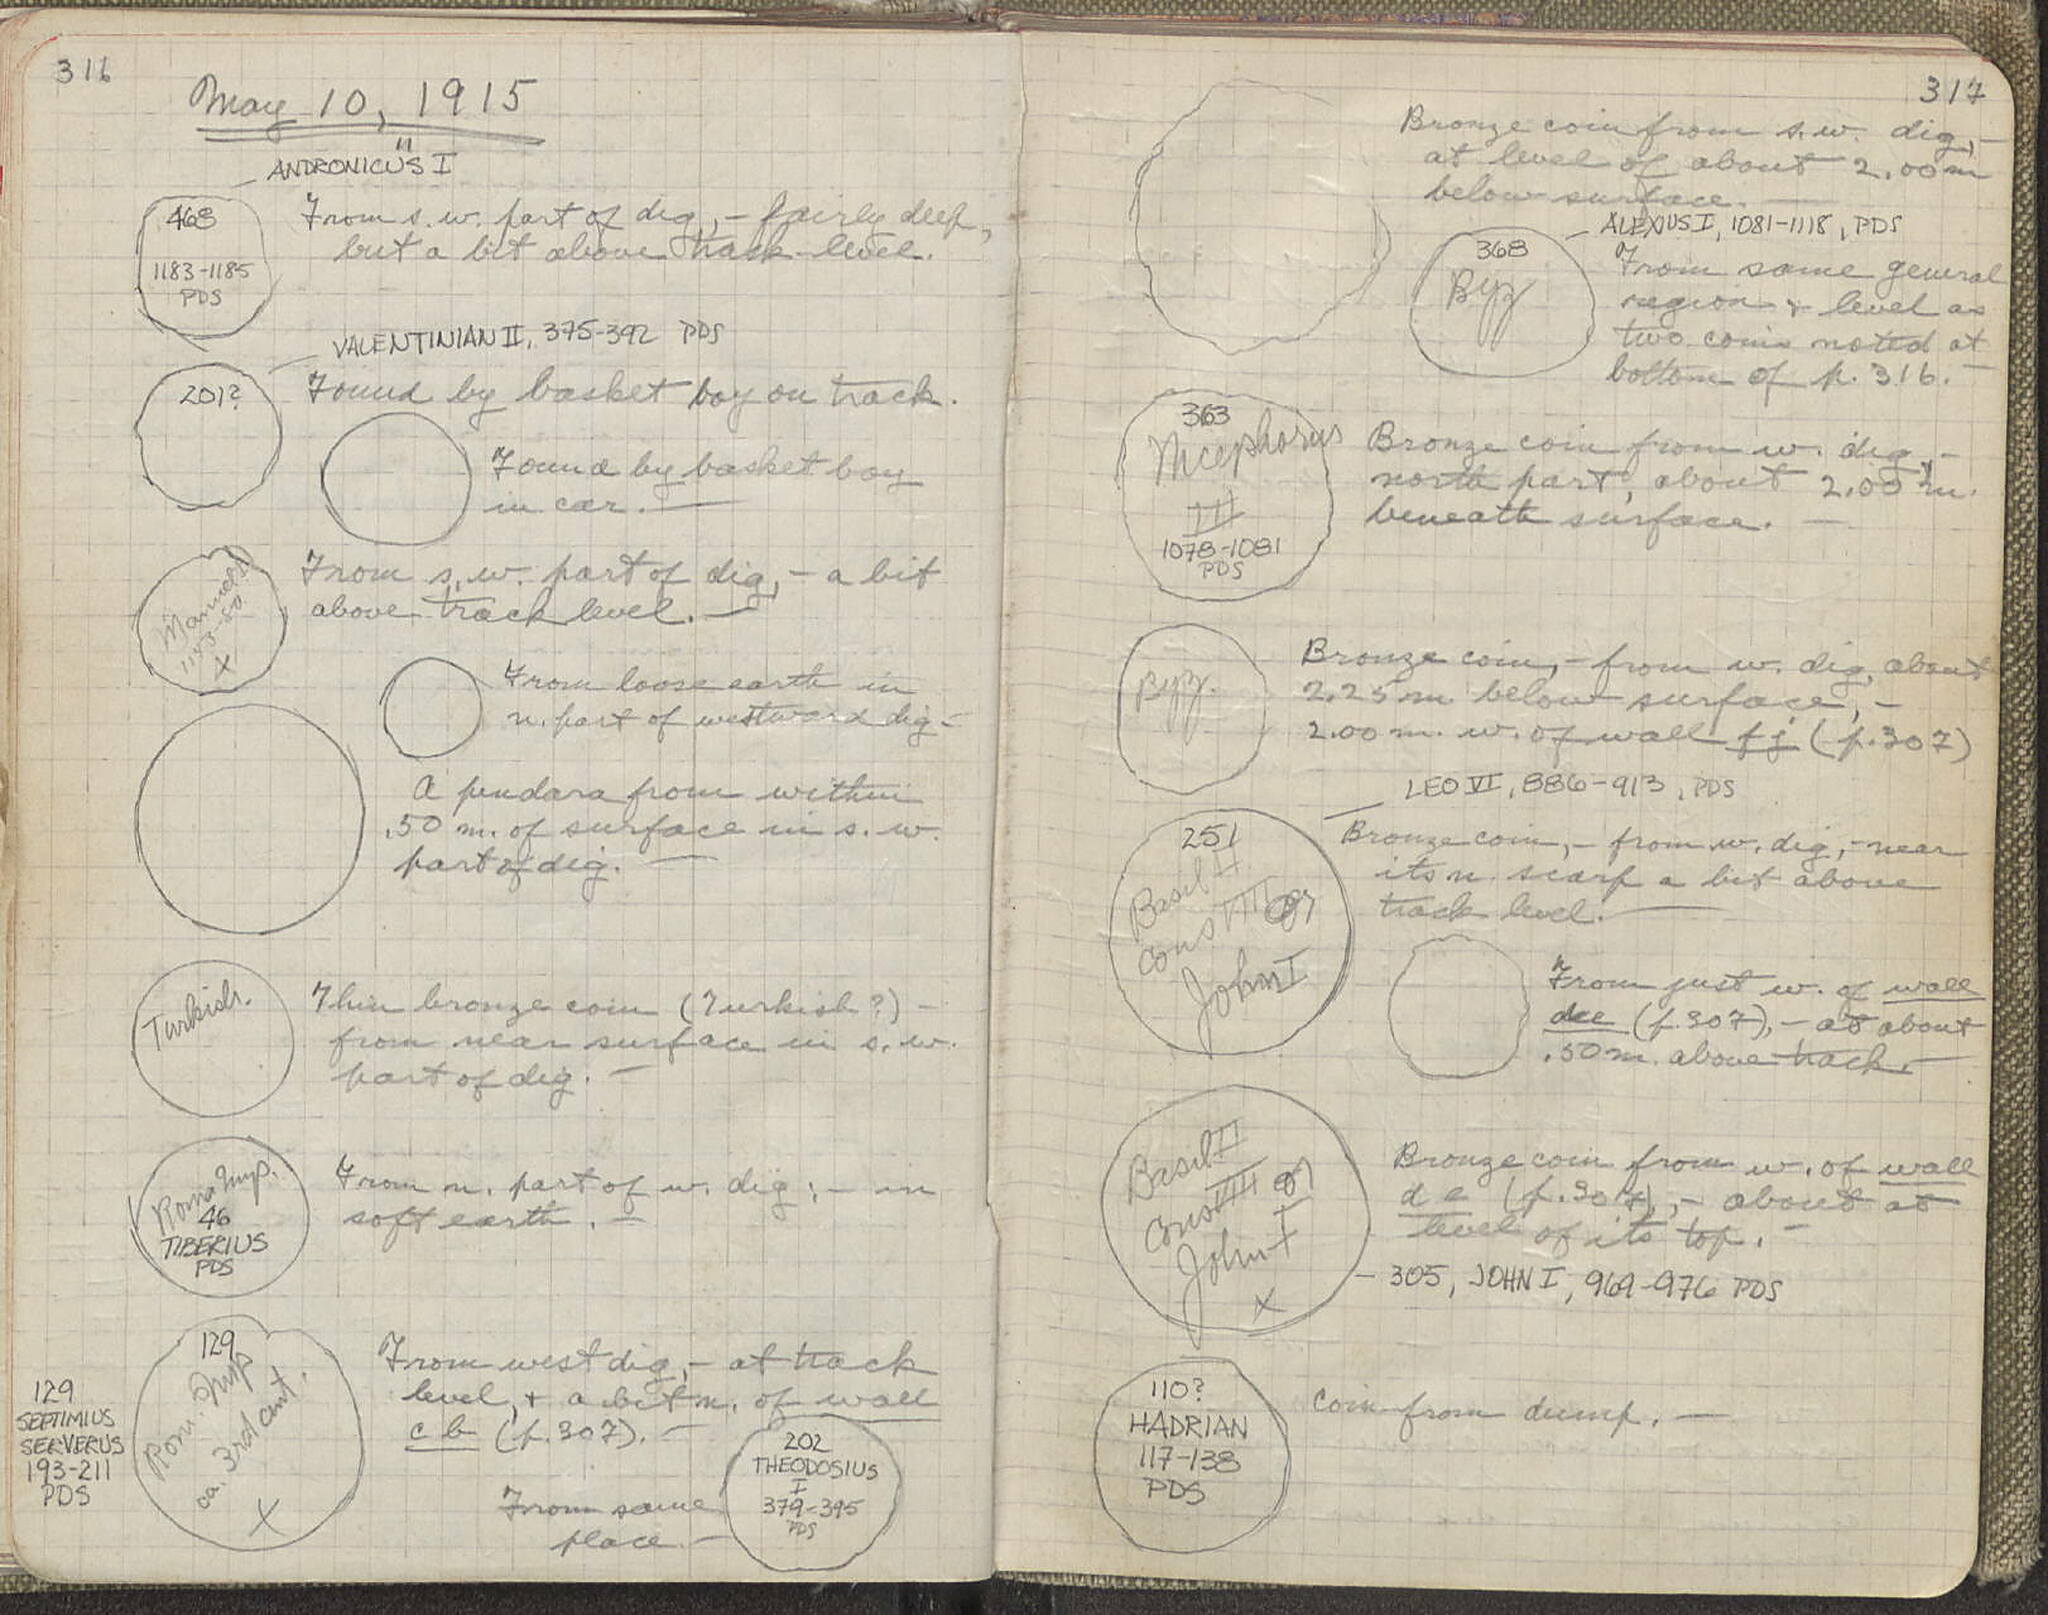 316
May 10, 1915
ANDRONICUS I
"
468
1183-1185
PDS
From s.w. part of dig, - fairly deep,
but a bit above track level.
VALENTINIAN II, 375-392 PDS
201?
Found by basket boy on track.
Found by basket boy
in car. —
Manuel I
1143-80
X
From s.w. part of dig, - a bit
above track level. —
From loose earth in
n. part of westward dig -
A pendara from within
.50 m. of surface in s.w.
part of dig. —
Turkish.
Thin bronze coin (Turkish?) -
from near surface in s.w.
part of dig. —
Roma Imp.
46
TIBERIUS
PDS
From n. part of w. dig; - in
soft earth. —
129
SEPTIMIUS
SERVERUS
193-211
PDS
129
Rom. Imp
ca. 3rd cent.
X
From west dig, - at track
level, & a bit n. of wall
cb (p.307). —
From same
place. —
202
THEODOSIUS
I
379-395
PDS
317
Bronze coin from s.w. dig, -
at level of about 2.00 m
below surface. —
ALEXIUS I, 1081-1118, PDS
368
Byz
From same general
region & level as
two coins noted at
bottom of p. 316. —
363
Nicephorus
III
1078-1081
PDS
Bronze coin from w. dig, -
north part, about 2.00 m.
beneath surface. —
Byz.
Bronze coin, - from w. dig, about
2.25 m below surface, -
2.00 m. w. of wall fj (p.307)
LEO VI, 886-913, PDS
251
Basil II
Cons VIII or
John I
Bronze coin, - from w. dig, - near
its n. scarp a bit above
track level. —
From just w. of wall
de (p.307), - at about
.50 m. above track. —
Basil II
Cons VIII or
John I
X
Bronze coin from w. of wall
de (p.307), - about at
level of its top. —
- 305, JOHN I, 969-976 PDS
110?
HADRIAN
117-138
PDS
Coin from dump. —